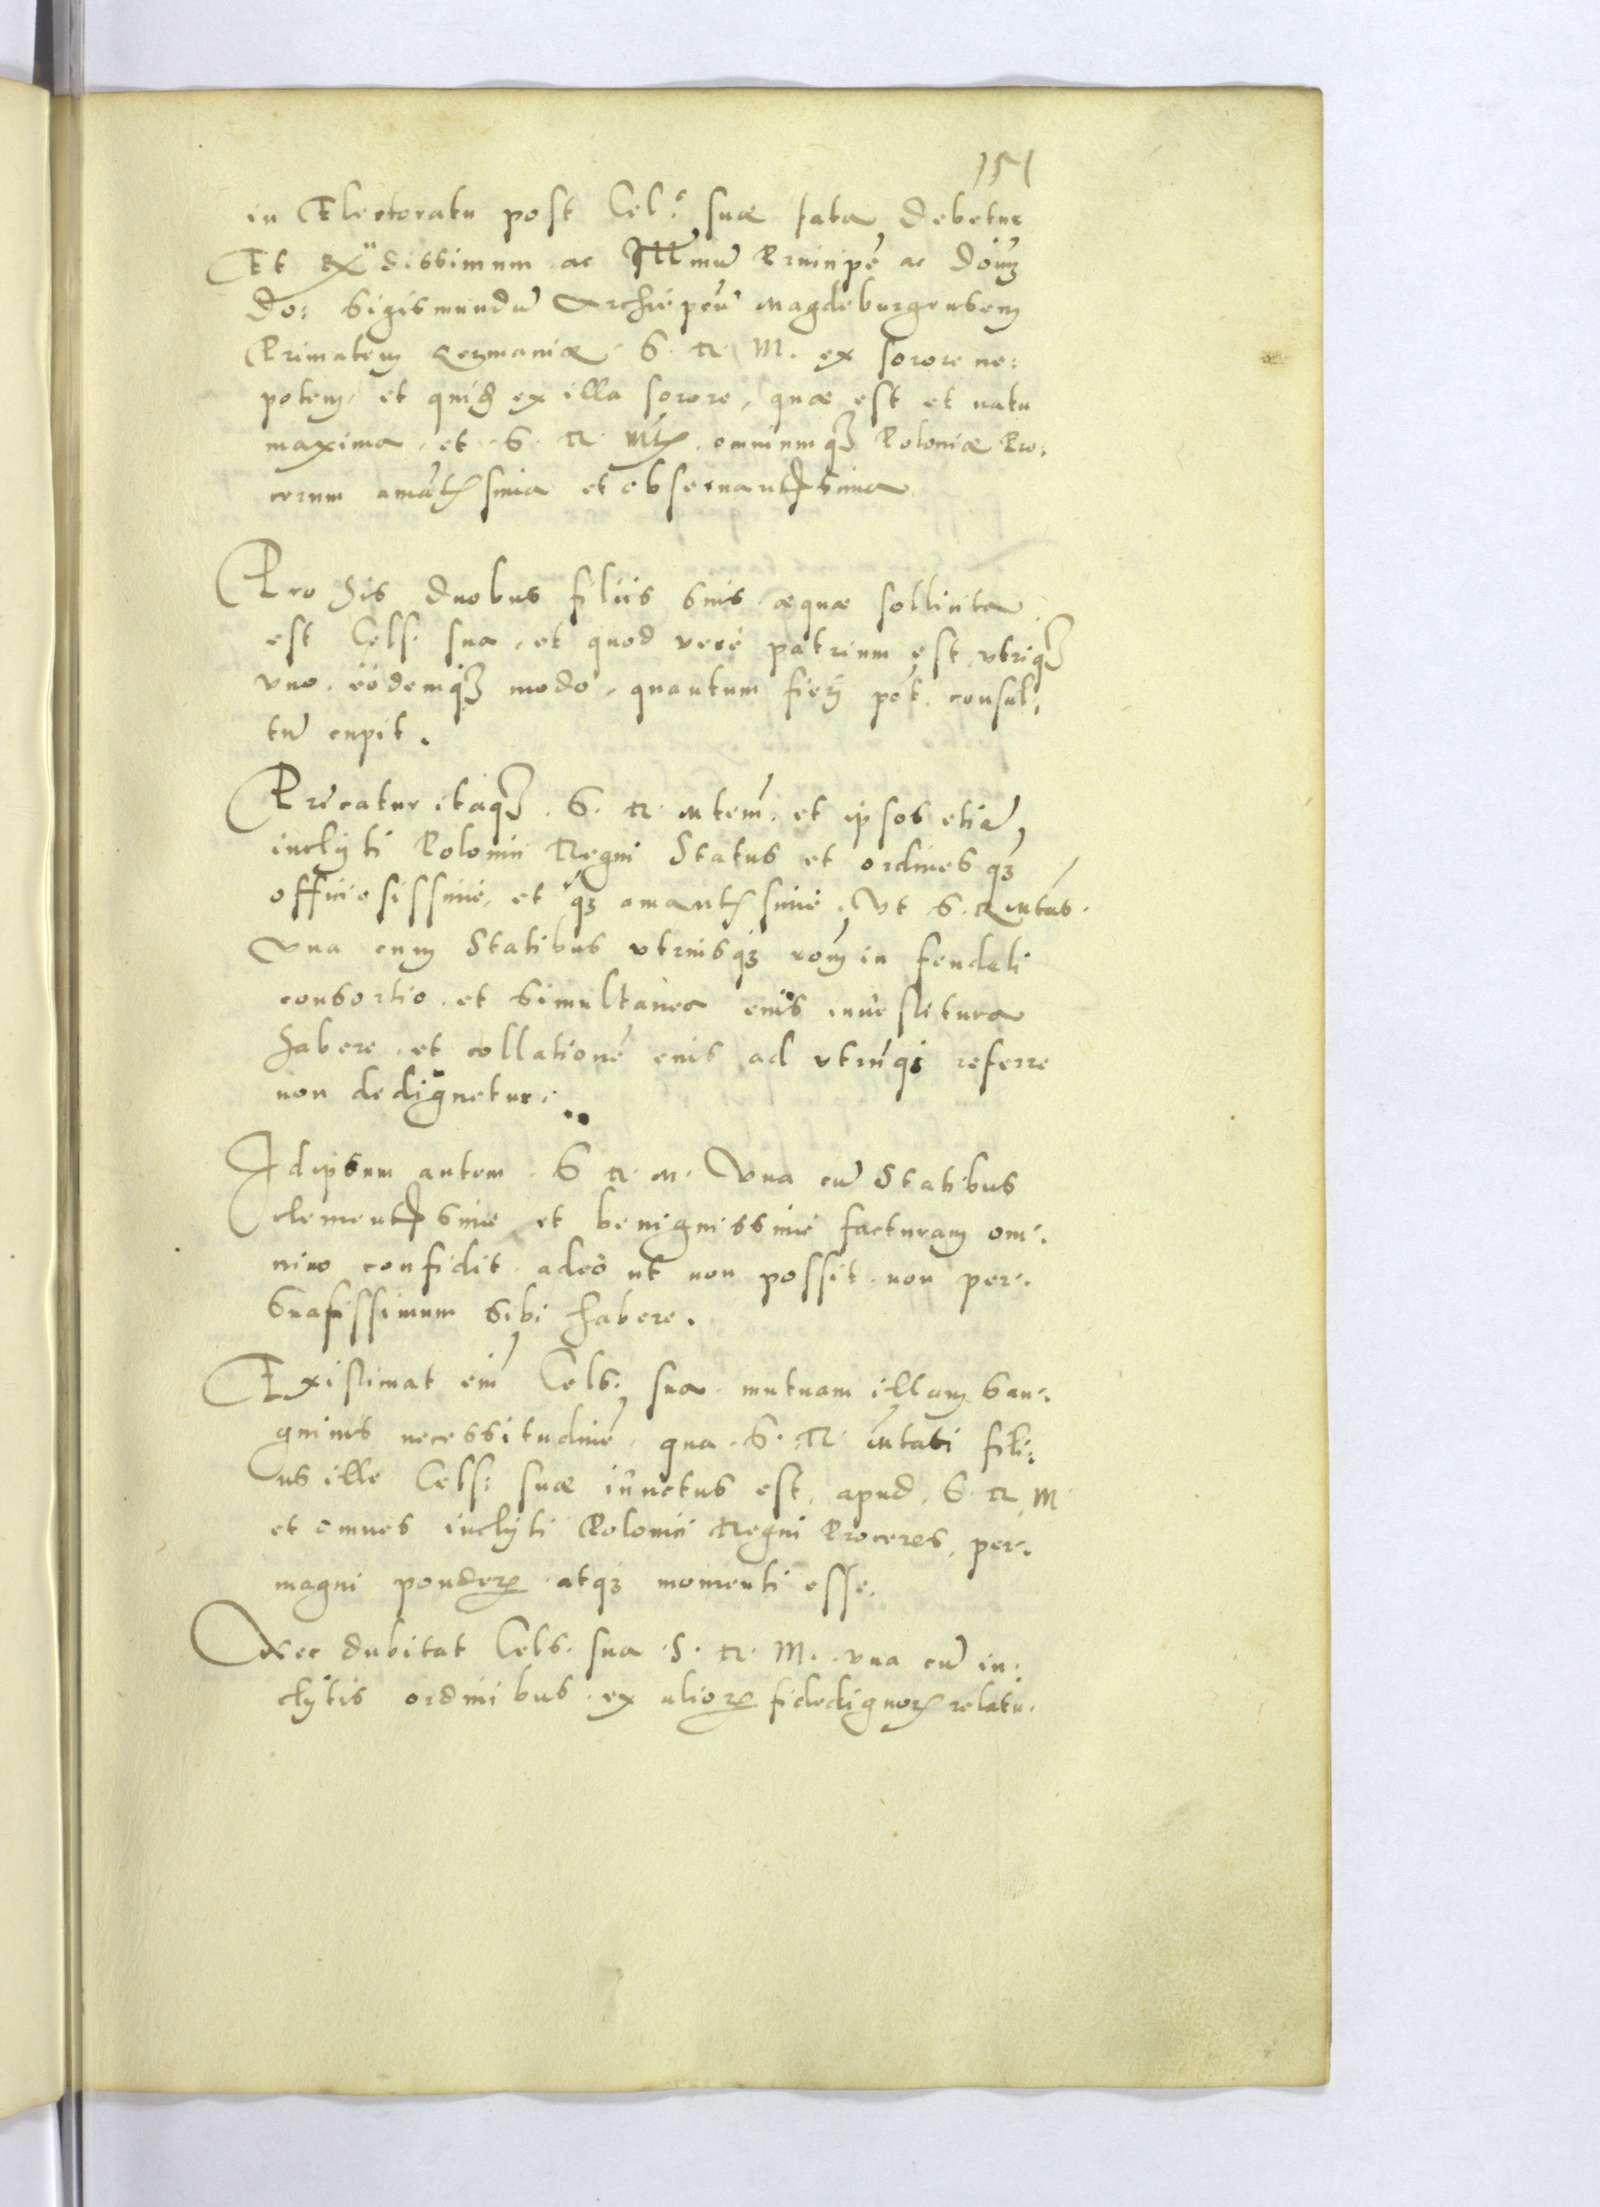 151
in Electoratu post Cel: suæ fata debetur
Et Rdissimum ac Illmū Principē ac Doūm
Do: Sigismundū Archiepcū Magdeburgensem
Primatem Germaniæ S. R. M. ex sorore ne:
potem, et quidem ex illa sorore, quæ est et natu
maxima, et S. R. Mtis omniumq3 Poloniæ Pro:
cerum amātissima et obseruantissima
Pro his duobus filiis suis æquæ sollicita
est Cels: sua, et quod verè patrium est, vtriq3
vno, eòdemq3 modo, quantum fieri pōt, consul:
tū cupit.
Precatur itaq3 S. R. Mtem̄ et ipsos etiā
inclyti Polonici Regni Status et ordinesq3
officiosissimè, et q3 amantissimè, Vt S. R. Mtas
Vna cum Statibus vtriusq3 rōm in feudali
consortio, et simultanea eius inuestitura
habere, et collationē eius ad vtrūq3 referre
non dedignetur:
Idipsum autem S. R. M. Vna cū Statibus
clementissimè et benignissimè facturam om:
nino confidit, adeò ut non possit non per:
suasissimum sibi habere.
Existimat eīm Cels: sua mutuam illam san:
guinis necessitudinē, qua S. R. Mtati fili:
us ille Cels: suæ iunctus est, apud S. R. M
et omnes inclyti Polonici Regni Proceres, per:
magni ponderis atq3 momenti esse.
Nec dubitat Cels. sua S. R. M. vna cū in:
clytis ordinibus ex aliorum fidedignorum relatu